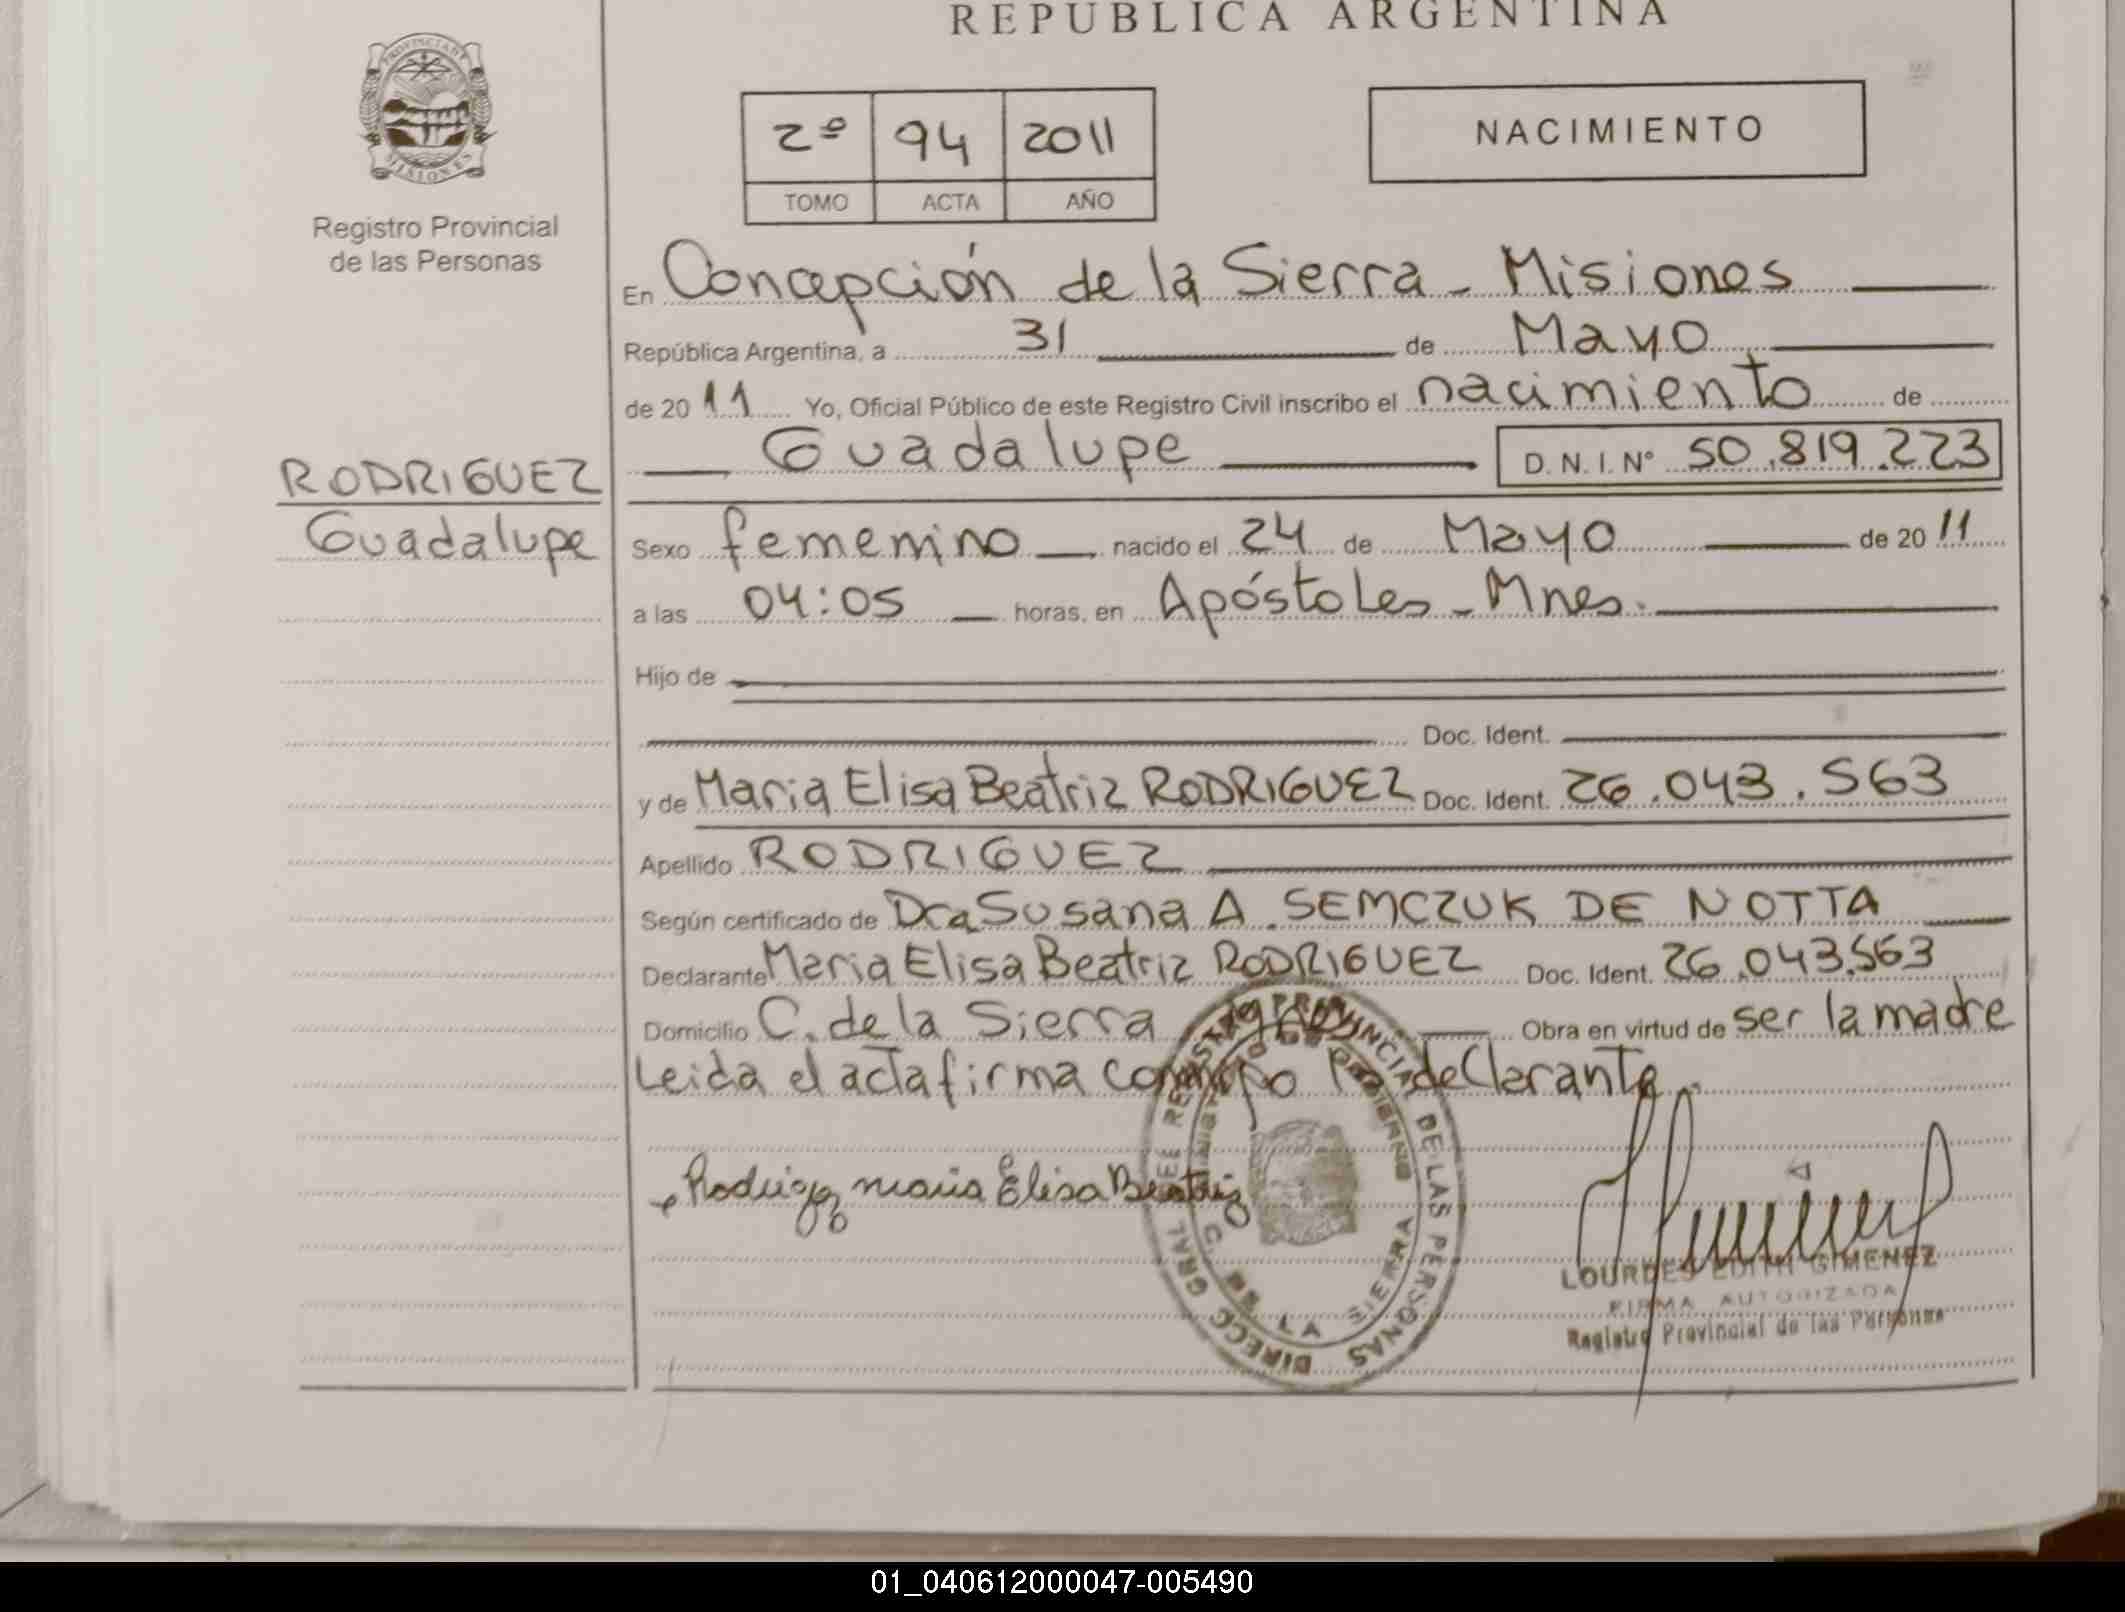 REPUBLICA ARGENTINA
PROVINCIA DE
MISIONES
Registro Provincial
de las Personas
2º 94 2011
TOMO ACTA AÑO
NACIMIENTO
En Concepción de la Sierra - Misiones
República Argentina, a 31 de Mayo
de 2011 Yo, Oficial Público de este Registro Civil inscribo el nacimiento de
Guadalupe D. N. I. Nº 50.819.223
RODRIGUEZ
Guadalupe
Sexo femenino nacido el 24 de Mayo de 2011
a las 04:05 horas, en Apóstoles - Mnes.
Hijo de
Doc. Ident.
y de Maria Elisa Beatriz RODRIGUEZ Doc. Ident. 26.043.563
Apellido RODRIGUEZ
Según certificado de Dra Susana A. SEMCZUK DE NOTTA
Declarante Maria Elisa Beatriz RODRIGUEZ Doc. Ident. 26.043.563
Domicilio C. de la Sierra Obra en virtud de ser la madre
Leida el acta firma conmigo la declarante.
Rodriguez maria Elisa Beatriz
DIRECC GRAL DEL REGISTRO PROVINCIAL DE LAS PERSONAS
MINISTERIO DE GOBIERNO
C. DE LA SIERRA
LOURDES EDITH GIMENEZ
FIRMA AUTORIZADA
Registro Provincial de las Personas
01_040612000047-005490